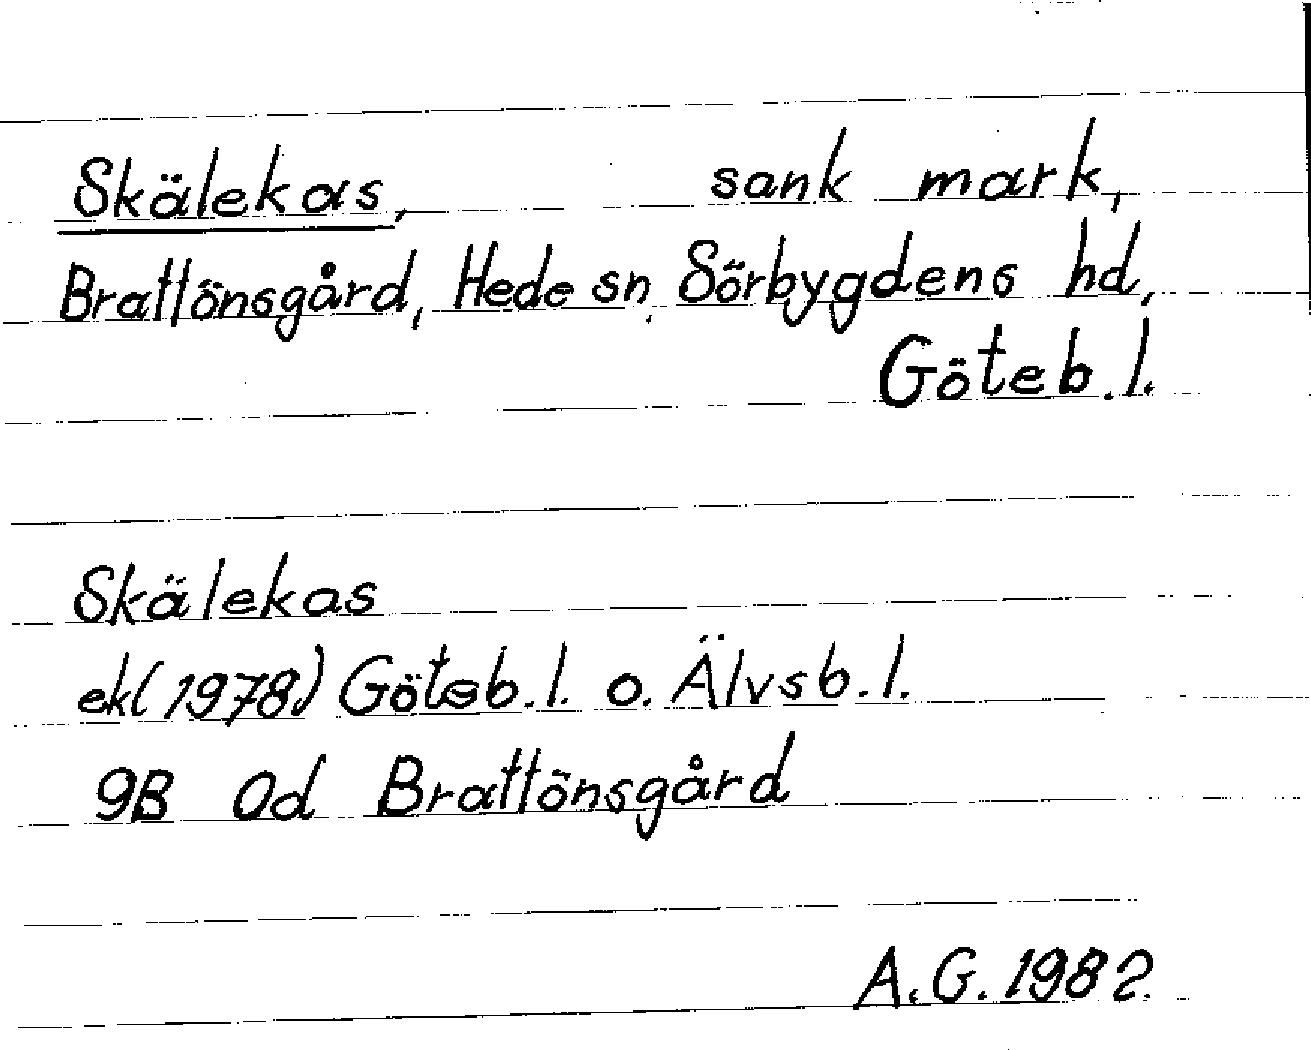 Skälekas, sank mark,
Brattönsgård, Hede sn, Sörbygdens hd,
Göteb. l.
Skälekas
ek (1978) Göteb. l. o. Älvsb. l.
9B 0d Brattönsgård
A.G. 1982